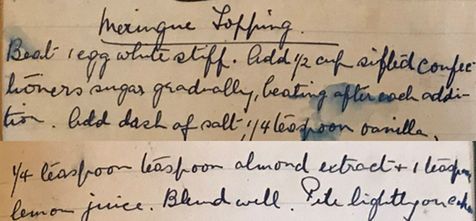 Meringue Topping.
Beat 1 egg white stiff. Add 1/2 cup sifted confec-
tioners sugar gradually, beating after each addi-
tion. Add dash of salt, 1/4 teaspoon vanilla,
1/4 teaspoon teaspoon almond extract + 1 teaspoon
lemon juice. Blend well. Pile lightly on cake